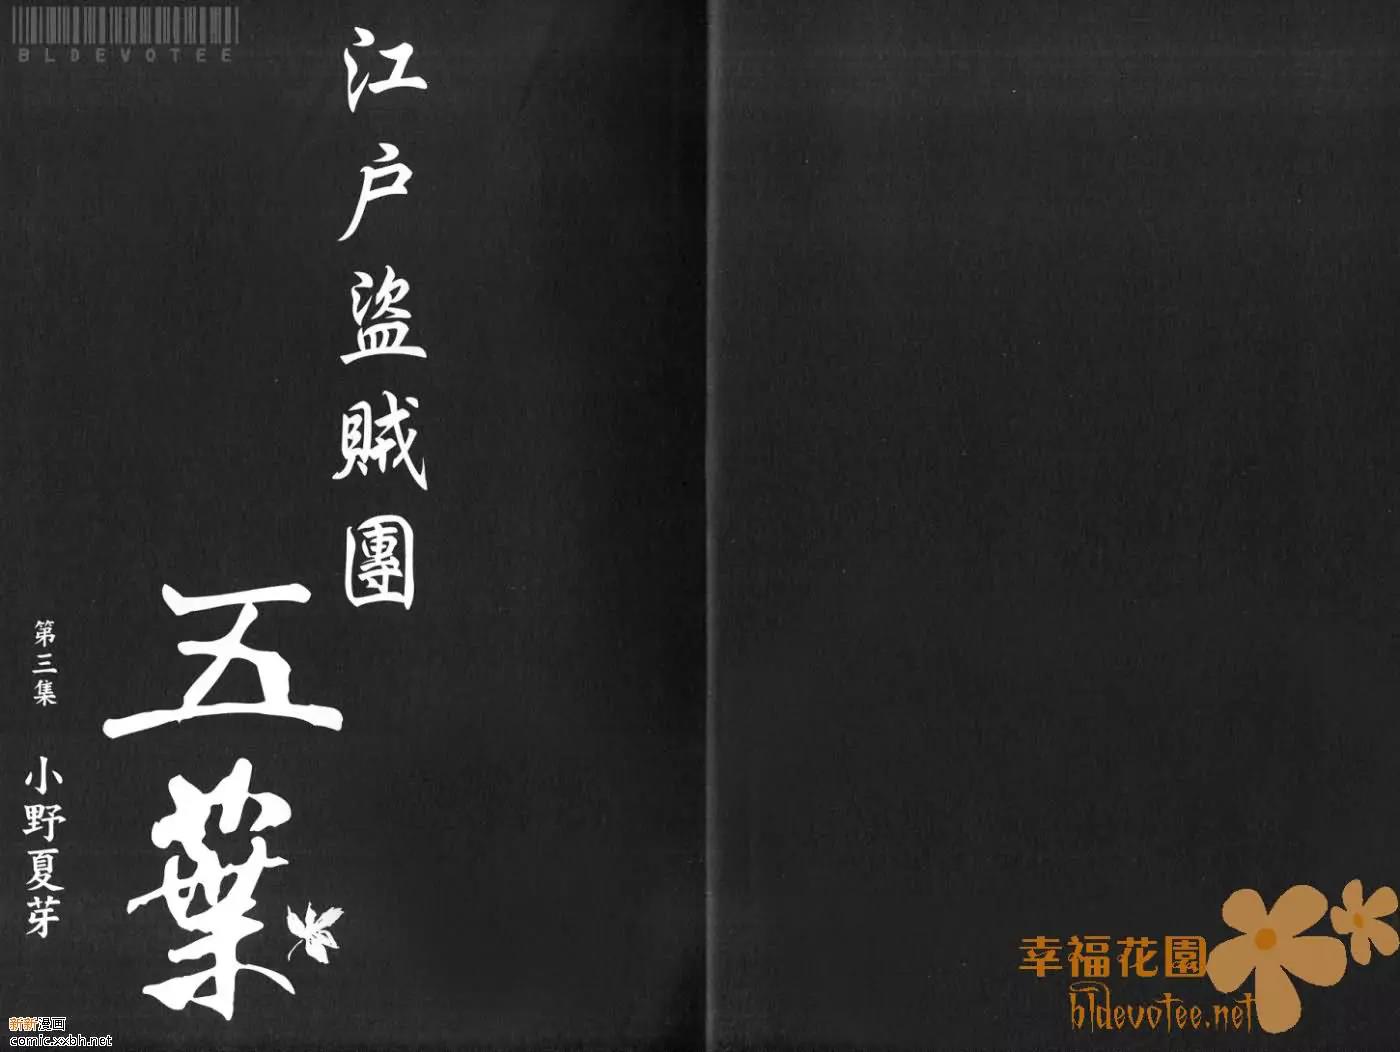 BLDEVOTEE
江戶盜賊團
五葉
第三集
小野夏芽
幸福花園
bldevotee.net
新新漫画
comic.xxbh.net